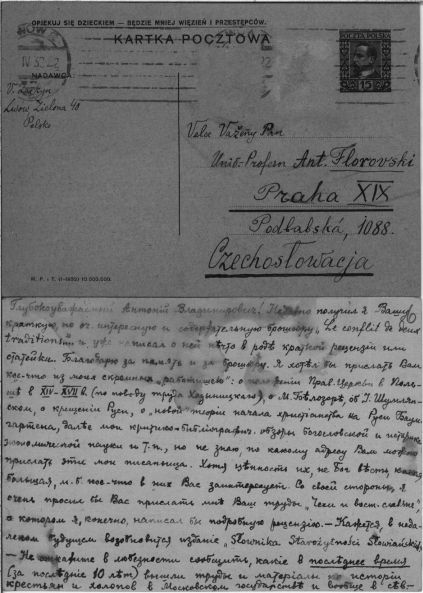 OPIEKUJ SIĘ DZIECKIEM — BĘDZIE MNIEJ WIĘŹNIÓW I PRZESTĘPCÓW.
KARTKA POCZTOWA
POCZTA POLSKA
15
NADAWCA:
Lwów Zielona 40
Polsko
Velce Vážený Pan
Univ.-Profesor Ant. Florovski
Praha XIX
Podbabská, 1088.
Czechosłowacja
M. P. i T. (I-1932) 10.000.000.
Глубокоуважаемый Антоний Владимирович! Недавно получил я Вашу
краткую, но оч. интересную и содержательную брошюру „Le conflit de deux
traditions" и уже написал о ней нѣчто в родѣ краткой рецензіи или
статейки. Благодарю за память и за брошюру. Я хотѣл бы прислать Вам
кое-что из моих скромных „работишек": о положеніи Прав. Церкви в Поль-
шѣ в XIV–XVII в. (по поводу труда Ходыницкаго), о М. Бѣлозорѣ, об І. Шумлян-
ском, о крещеніи Руси, о „новой" теоріи начала христіанства на Руси Баум-
гартена, далѣе мои критико-библіографич. обзоры богословской и
экономической науки и т. п., но не знаю, по какому адресу Вам можно
прислать эти мои писаньица. Хотя цѣнность их, не Бог вѣсть, какая
большая, м. б. кое-что в них Вас заинтересует. Со своей стороны, я
очень просил бы Вас прислать мнѣ Ваш труд „Чехи и вост. славяне",
о котором я, конечно, написал бы подробную рецензію. — Кажется, в неда-
леком будущем возобновится изданіе „Słownika Starożytności Słowiańskich".
— Не откажите в любезности сообщить, какіе в послѣднее время
(за послѣдніе 10 лѣт) вышли труды и матеріалы по исторіи
крестьян и холопов в Московском государствѣ и вообще в сѣв.-